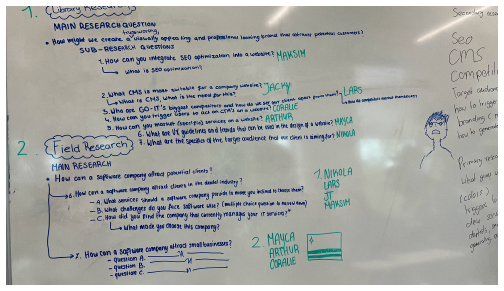 1. Library Research
MAIN RESEARCH QUESTION
trustworthy,
• How might we create a visually appealing and professional looking brand that attracts potential customers?
SUB-RESEARCH QUESTIONS
1. How can you integrate SEO optimization into a website? MAKSIM
What is SEO optimization?
2. What CMS is most suitable for a company website? JACKY
What is CMS, what is the need for this?
3. Who are GO-IT's biggest competitors and how do we set them apart from them? LARS
how do competitors market themselves
4. How can you trigger users to act on CTA's on a website? CORALIE
5. How can you market (specific) services on a website? ARTHUR
6. What UX guidelines and trends that can be used in the design of a website? MAYCA
7. What are the specifics of the target audience that our client is aiming for? NIKOLA
2. Field Research
MAIN RESEARCH
• How can a software company attract potential clients?
1. How can a software company attract clients in the dental industry?
- A. What services should a software company provide to make you inclined to choose them?
- B. What challenges do you face software wise? (multiple choice question to narrow down)
- C. How did you find the company that currently manages your IT services?
What made you choose this company?
2. How can a software company attract small businesses?
- question A.
- question B.
- question C.
1. NIKOLA
LARS
JT
MAKSIM
2. MAYCA
ARTHUR
CORALIE
Secondary
Seo
CMS
Target
how to trigger
branding
how to
Primary
what
(color)
trigger